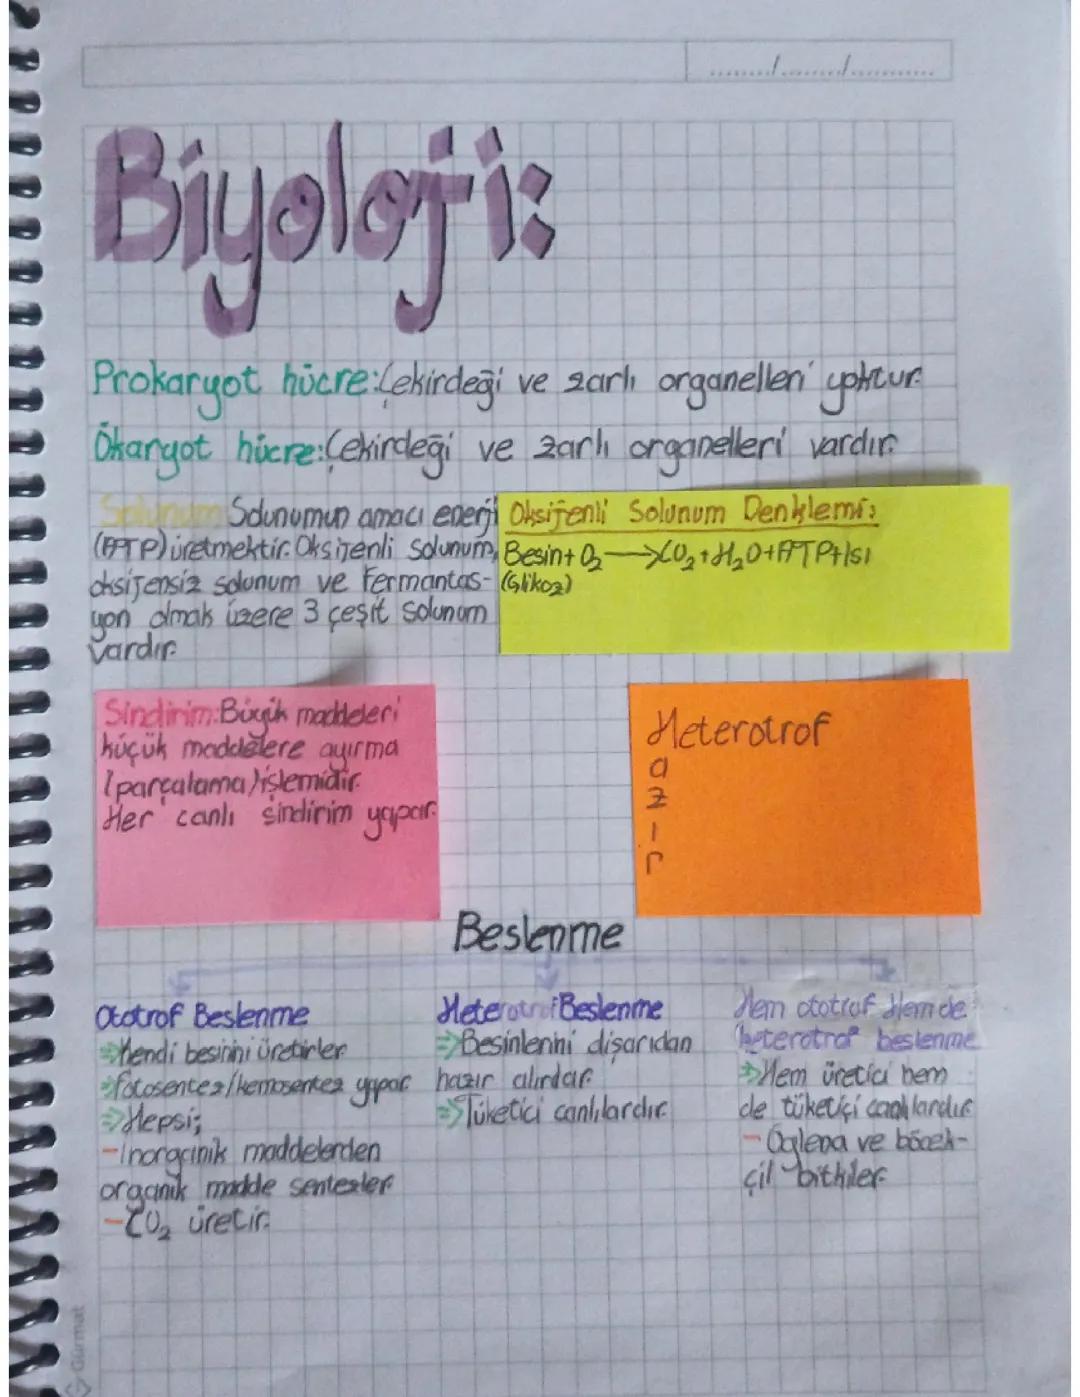 ......../......../...........
Biyoloji:
Prokaryot hücre: Çekirdeği ve zarlı organelleri yoktur.
Ökaryot hücre: Çekirdeği ve zarlı organelleri vardır.
Solunum: Solunumun amacı enerji
(ATP) üretmektir. Oksijenli solunum,
oksijensiz solunum ve fermantas-
yon olmak üzere 3 çeşit solunum
vardır.
Oksijenli Solunum Denklemi:
Besin + O₂ → CO₂ + H₂O + ATP + Isı
(Glikoz)
Sindirim: Büyük maddeleri
küçük maddelere ayırma
(parçalama) işlemidir.
Her canlı sindirim yapar.
Heterotrof
a
z
ı
r
Beslenme
Ototrof Beslenme
⇒ Kendi besinini üretirler
⇒ fotosentez/kemosentez yapar
⇒ Hepsi;
- İnorganik maddelerden
organik madde sentezler
- CO₂ üretir.
Heterotrof Beslenme
⇒ Besinlerini dışarıdan
hazır alırlar.
⇒ Tüketici canlılardır.
Hem ototrof Hem de
heterotrof beslenme
⇒ Hem üretici hem
de tüketiçi canlılardır
- Öglena ve böcek-
çil bitkiler.
Gürmat